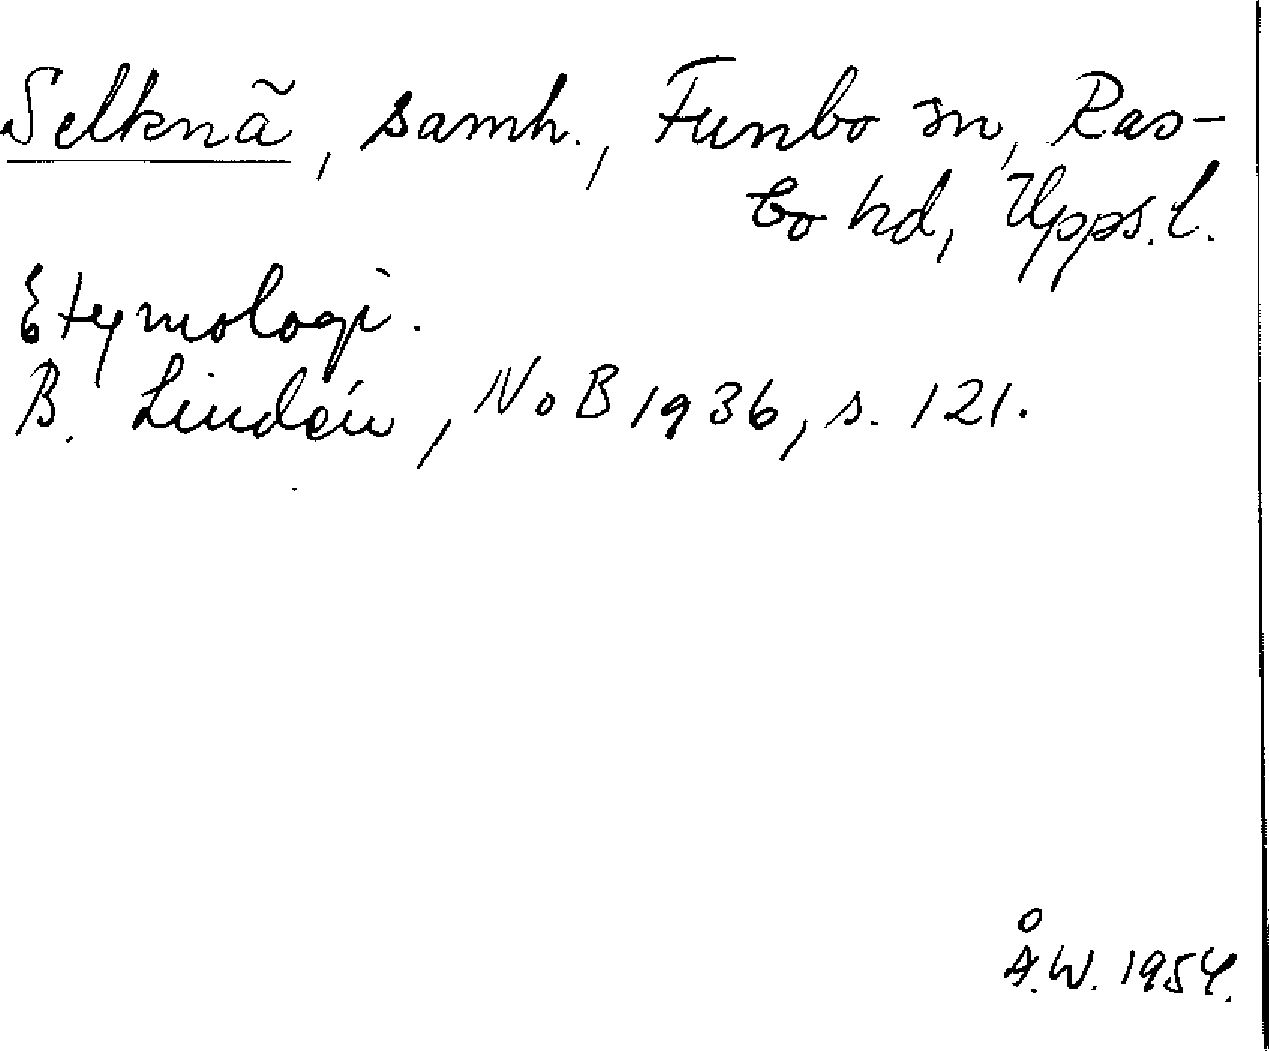 Selknä, samh., Funbo sn, Ras-
bo hd, Upps.l.
Etymologi.
B. Lindén, NoB 1936, s. 121.
Å.W. 1954.